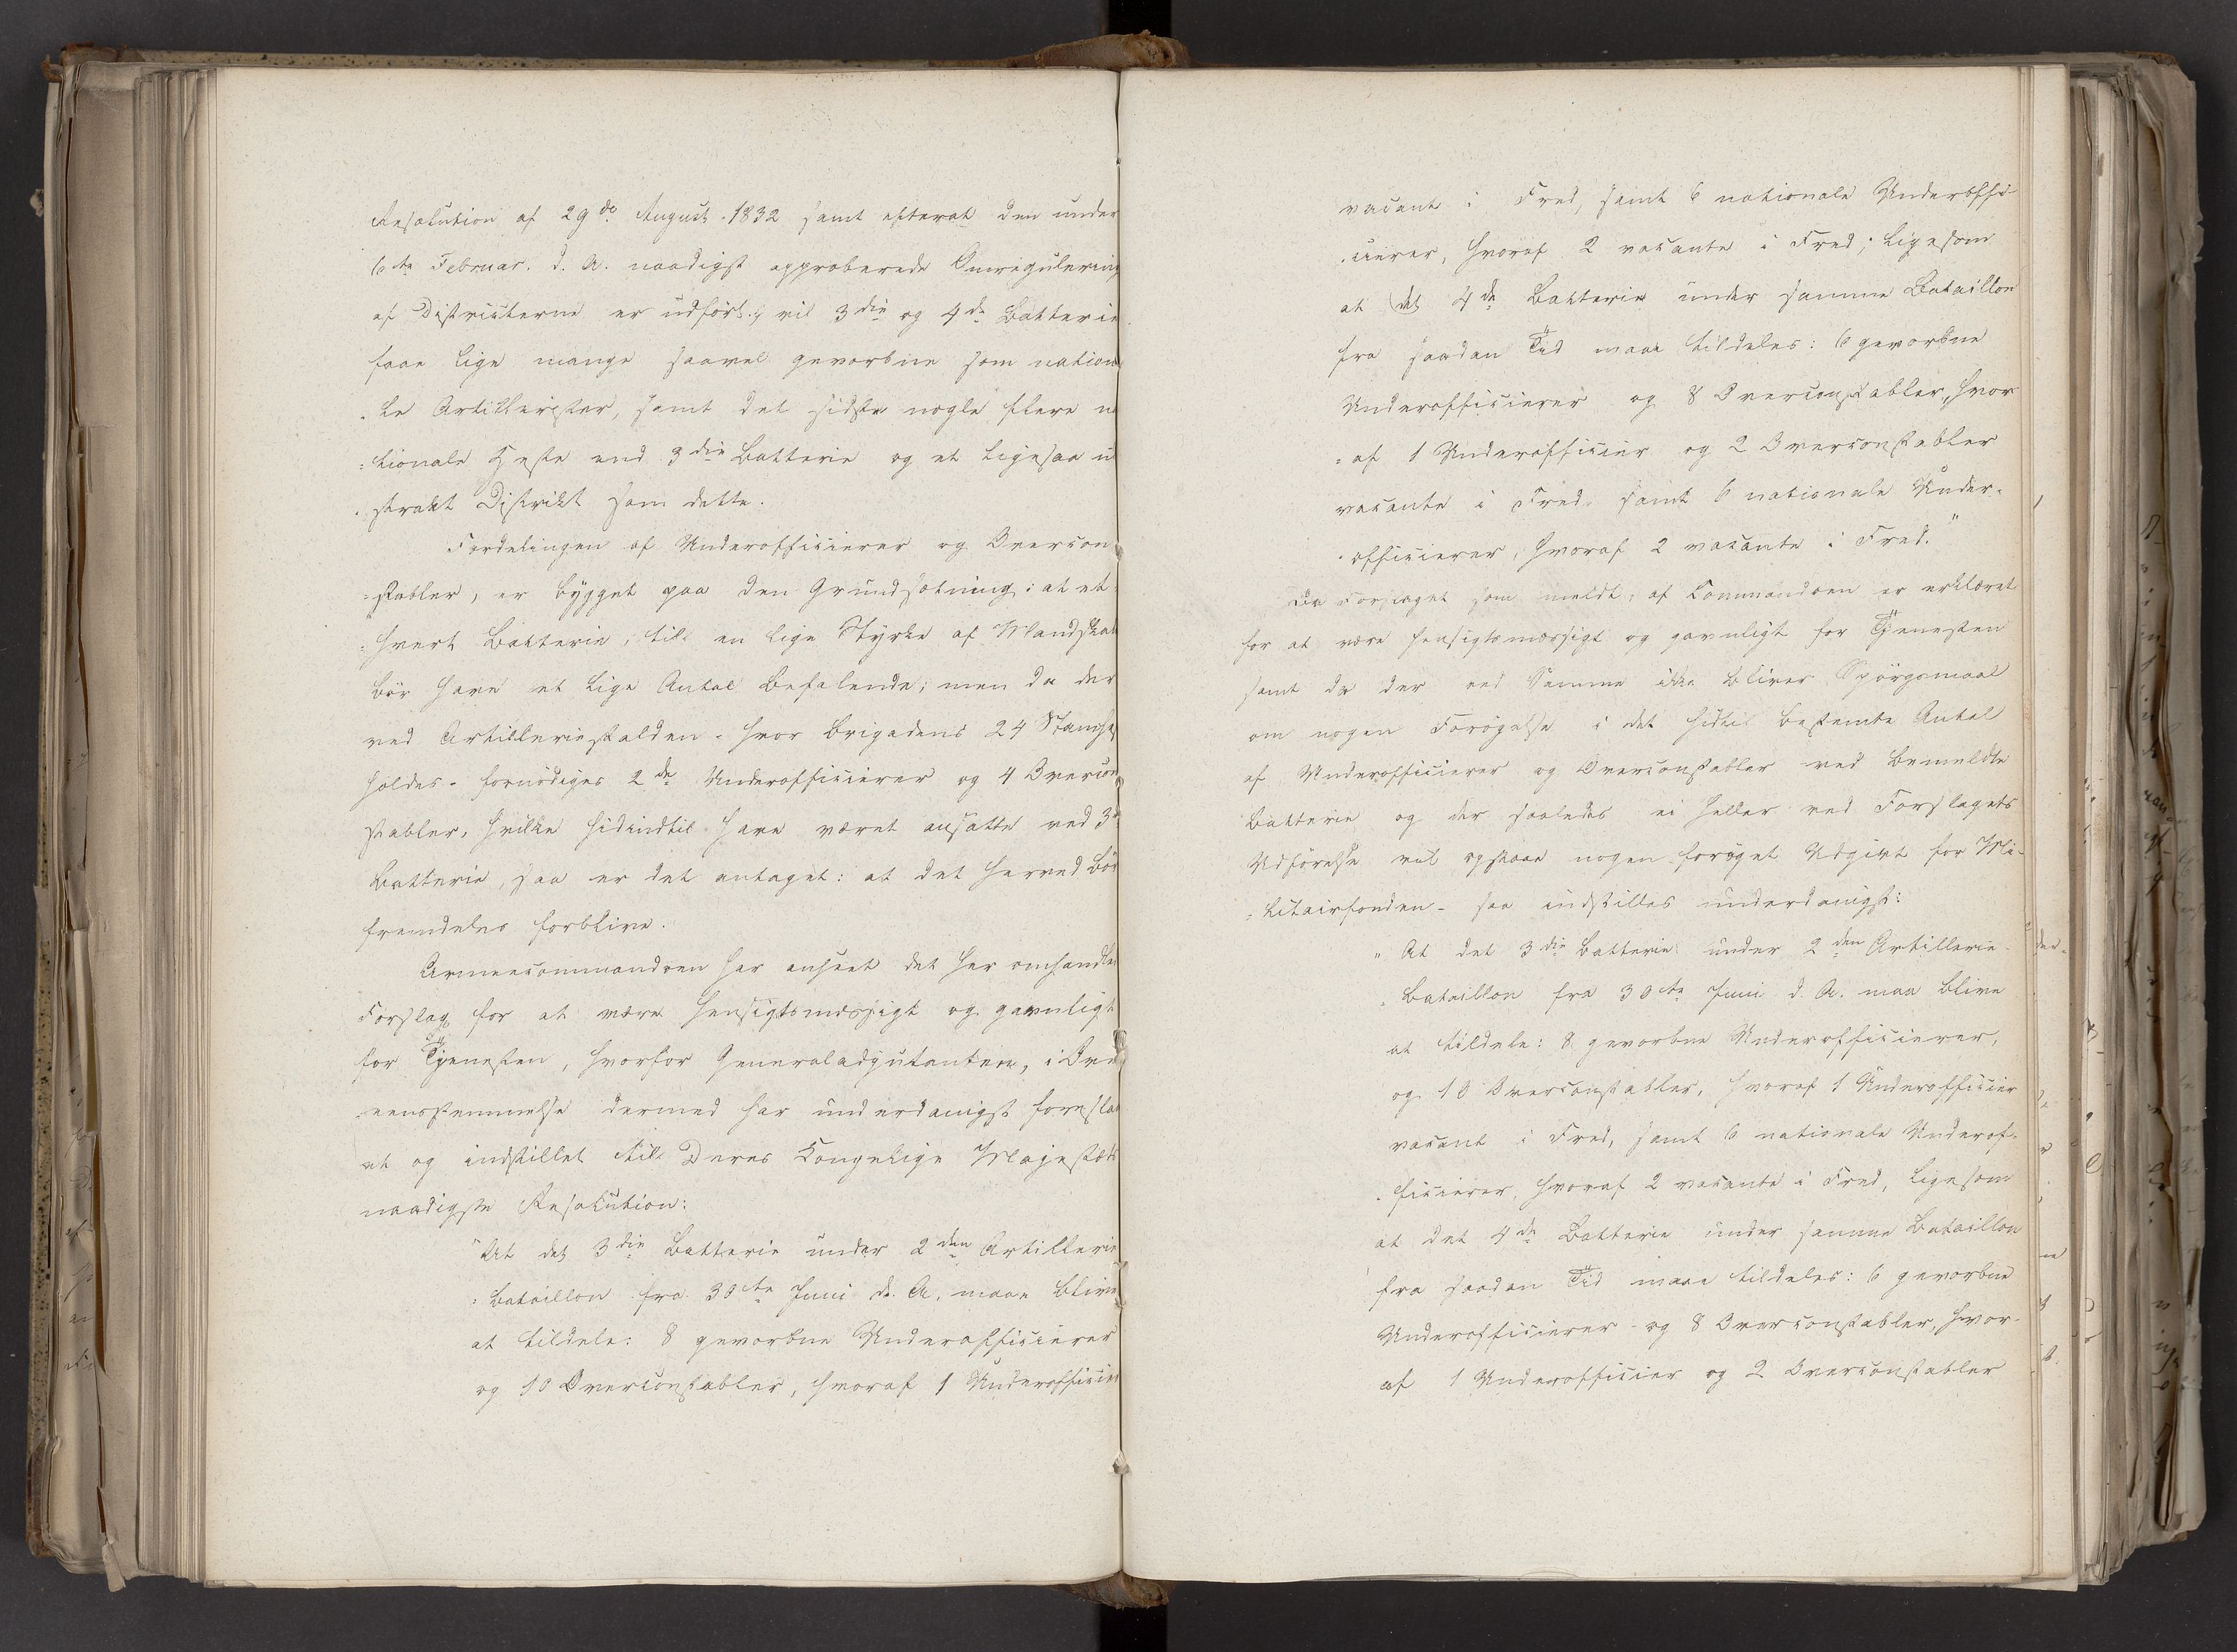 Resolution af 29de August 1832 samt efterat den under
6te Februar. d. A. naadigst approberede Omregulering
af Districterne er udført, vil 3die og 4de Batterie
faae lige mange saavel gevorbne som nationa
-le Artillerister, samt det sidste nogle flere na
=tionale Heste end 3die Batterie og et ligesaa ud
strakt Distrikt som dette.
Fordelingen af Underofficierer og Overcon
=stabler, er bygget paa den Grundsætning: at et
=hvert Batterie, till en lige Styrke af Mandskab
bör have et lige Antal Befalende; men da der
ved Artilleriestalden - hvor Brigadens 24 Stamhes
holdes - fornödiges 2de Underofficierer og 4 Overcon
stabler, hvilke hidindtil have været ansatte ved 3d
Batterie, saa er det antaget: at det herved bör
fremdeles forblive.
Armeecommandoen har anseet det her omhandle
Forslag for at være hensigtsmæssigt og gavnligt
for Tjenesten, hvorfor Generaladjutanten, i Ove
eensstemmelse dermed har underdanigst foresla
et og indstillet till Deres Kongelige Majestæts
naadigste Resolution:
"At det 3die Batterie under 2den Artillerie
=Bataillon fra 30te Juni d. A. maae blive
at tildele: 8 gevorbne Underofficierer
og 10 Overconstabler, hvoraf 1 Underofficier
vacant i Fred, samt 6 nationale Underoffi-
-cierer, hvoraf 2 vacante i Fred; ligesom
at det 4de Batterie under samme Bataillon
fra saadan Tid maae tildeles: 6 gevorbne
Underofficierer og 8 Overconstabler, hvor
=af 1 Underofficier og 2 Overconstabler
vacante i Fred, samt 6 nationale Under-
-officierer, hvoraf 2 vacante i Fred."
Da Forslaget som meldt, af Commandoen er erklæret
for at være hensigtsmæssigt og gavnligt for Tjenesten
samt da der ved Samme ikke bliver Spörgsmaal
om nogen Forögelse i det hidtil bestemte Antal
af Underofficierer og Overconstabler ved bemeldte
Batterie og der saaledes ei heller ved Forslagets
Udförelse vil opstaae nogen foröget Udgivt for Mi-
=litairfonden - saa indstilles underdanigst:
"At det 3die Batterie under 2den Artillerie-
-Bataillon fra 30te Juni d. A. maa blive
at tildele: 8 gevorbne Underofficierer,
og 10 Overconstabler, hvoraf 1 Underofficier
vacant i Fred, samt 6 nationale Underof-
-ficierer, hvoraf 2 vacante i Fred, ligesom
at det 4de Batterie under samme Bataillon
fra saadan Tid maae tildeles: 6 gevorbne
Underofficierer - og 8 Overconstabler, hvor-
af 1 Underofficier og 2 Overconstabler